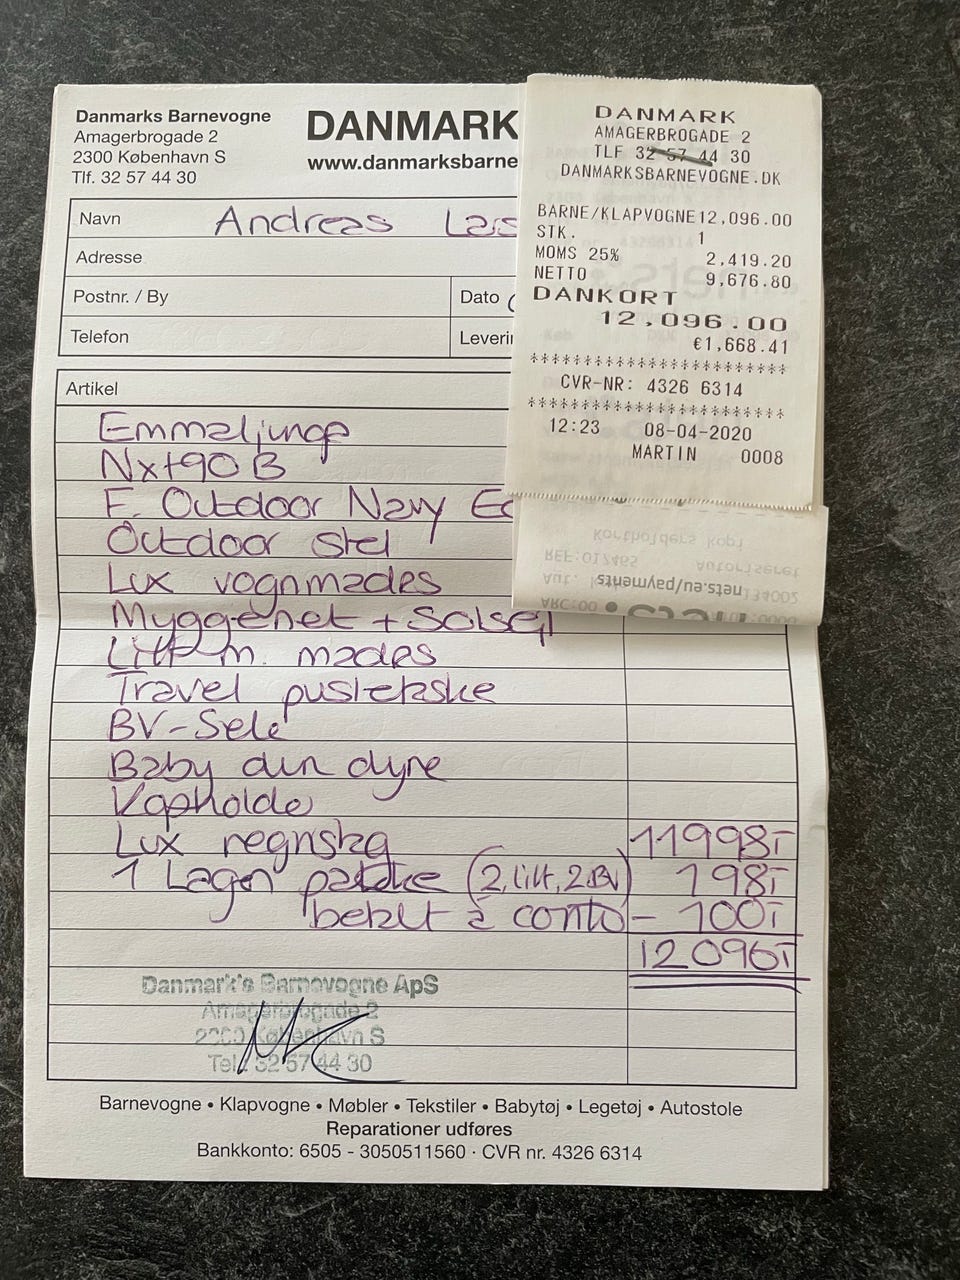 Danmarks Barnevogne
Amagerbrogade 2
2300 København S
Tlf. 32 57 44 30
DANMARK
www.danmarksbarne
Navn Andreas
Adresse
Postnr. / By
Dato
Telefon
Leveri
Artikel
Emmaljunga
Nxt90 B
F. Outdoor Navy Ec
Outdoor stel
Lux vognmades
Myggenet + Solsejl
Lift m. mades
Travel pusletaske
BV-Sele
Baby dun dyne
Kopholde
Lux regnslag 11998,-
1 Lagen pakke (2 lift, 2 BV) 198,-
betalt à conto - 100,-
12096,-
Danmark's Barnevogne ApS
Amagerbrogade 2
2300 København S
Tel. 32 57 44 30
Barnevogne • Klapvogne • Møbler • Tekstiler • Babytøj • Legetøj • Autostole
Reparationer udføres
Bankkonto: 6505 - 3050511560 · CVR nr. 4326 6314
DANMARK
AMAGERBROGADE 2
TLF 32 57 44 30
DANMARKSBARNEVOGNE.DK
BARNE/KLAPVOGNE 12,096.00
STK. 1
MOMS 25% 2,419.20
NETTO 9,676.80
DANKORT
12,096.00
€1,668.41
************************
CVR-NR: 4326 6314
************************
12:23 08-04-2020
MARTIN 0008
Kortholders kopi
REF:017465 Autoriseret
nets.eu/payments
Aut. 134002
ARC:00